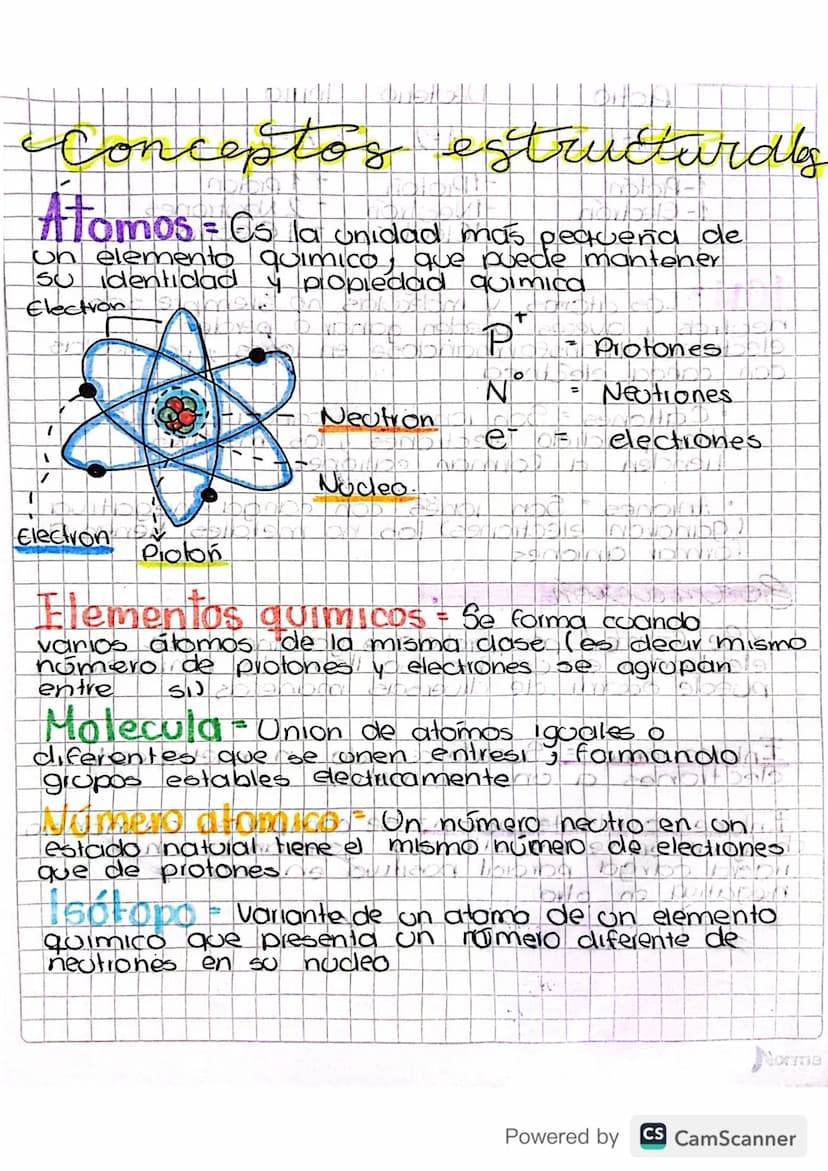 Conceptos estructurales
Átomos = Es la unidad más pequeña de
un elemento químico, que puede mantener
su identidad y propiedad química
Electron
P+ = Protones
N° = Neutrones
e- = electrones
Neutron
Nucleo.
Electron
Protón
Elementos quimicos = Se forma cuando
varios átomos de la misma clase (es decir mismo
número de protones y electrones se agrupan
entre si)
Molecula = Union de atomos iguales o
diferentes que se unen entresi, formando
grupos estables electricamente
Número atomico = Un número neutro en un
estado natural tiene el mismo número de electrones
que de protones
Isótopo = Variante de un atomo de un elemento
quimico que presenta un número diferente de
neutrones en su núcleo
Norma
Powered by CS CamScanner